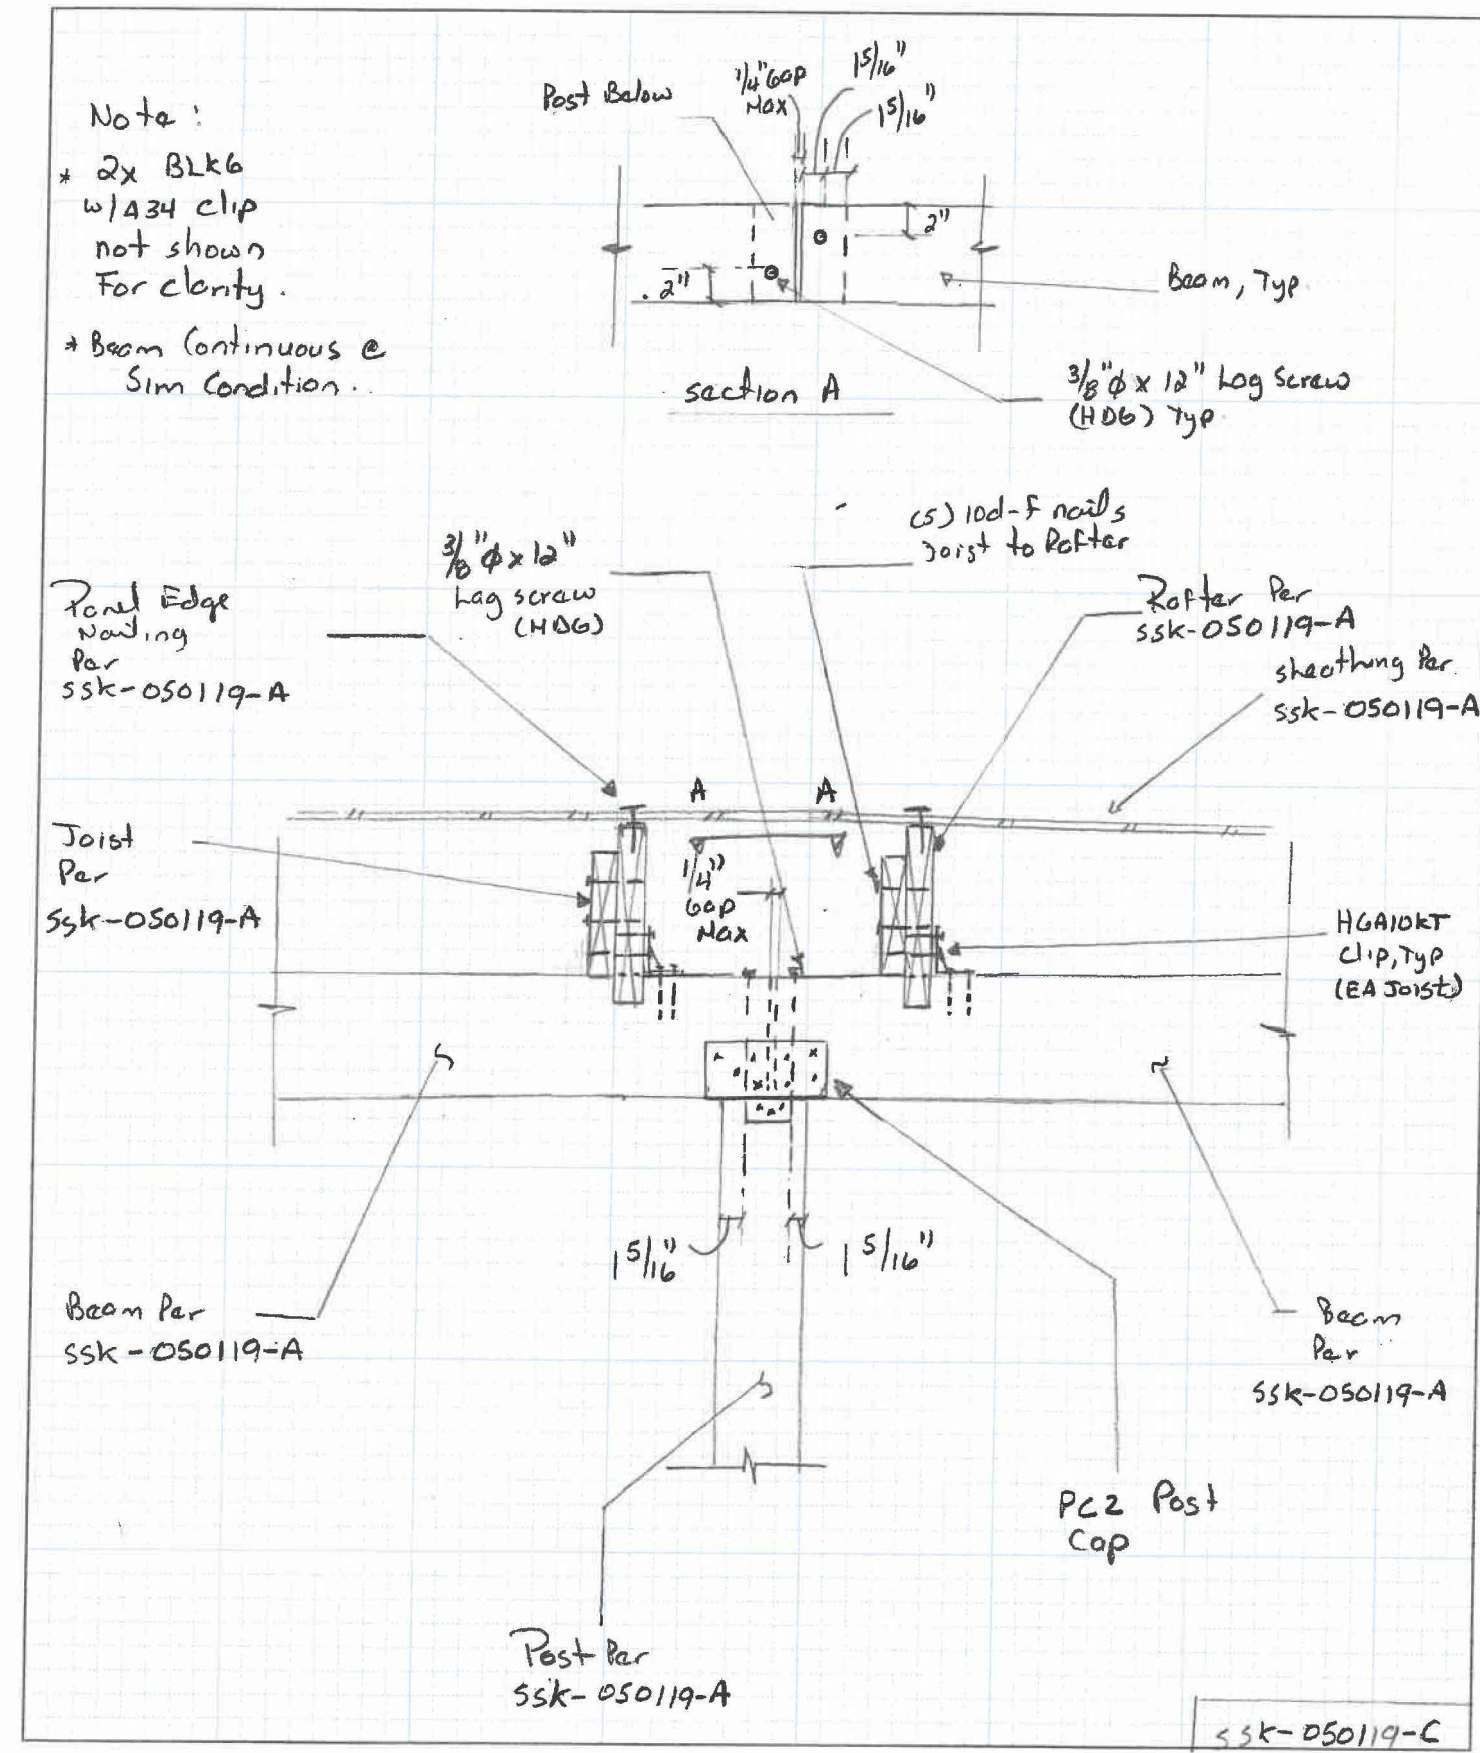 Note:
* 2x BLKG
w/A34 clip
not shown
For clarity.
* Beam Continuous @
Sim Condition.
Post Below
1/4" Gap
Max
1 5/16"
1 5/16"
2"
2"
Beam, Typ.
section A
3/8"ϕ x 12" Lag Screw
(HDG) Typ.
3/8"ϕ x 12"
Lag screw
(HDG)
(5) 10d-F nails
Joist to Rafter
Panel Edge
Nailing
Per
SSK-050119-A
Rafter Per
SSK-050119-A
sheathing Per
SSK-050119-A
A
A
Joist
Per
SSK-050119-A
1/4"
Gap
Max
HGA10KT
Clip, Typ
(EA Joist)
1 5/16"
1 5/16"
Beam Per
SSK-050119-A
Beam
Per
SSK-050119-A
PC2 Post
Cap
Post Per
SSK-050119-A
SSK-050119-C